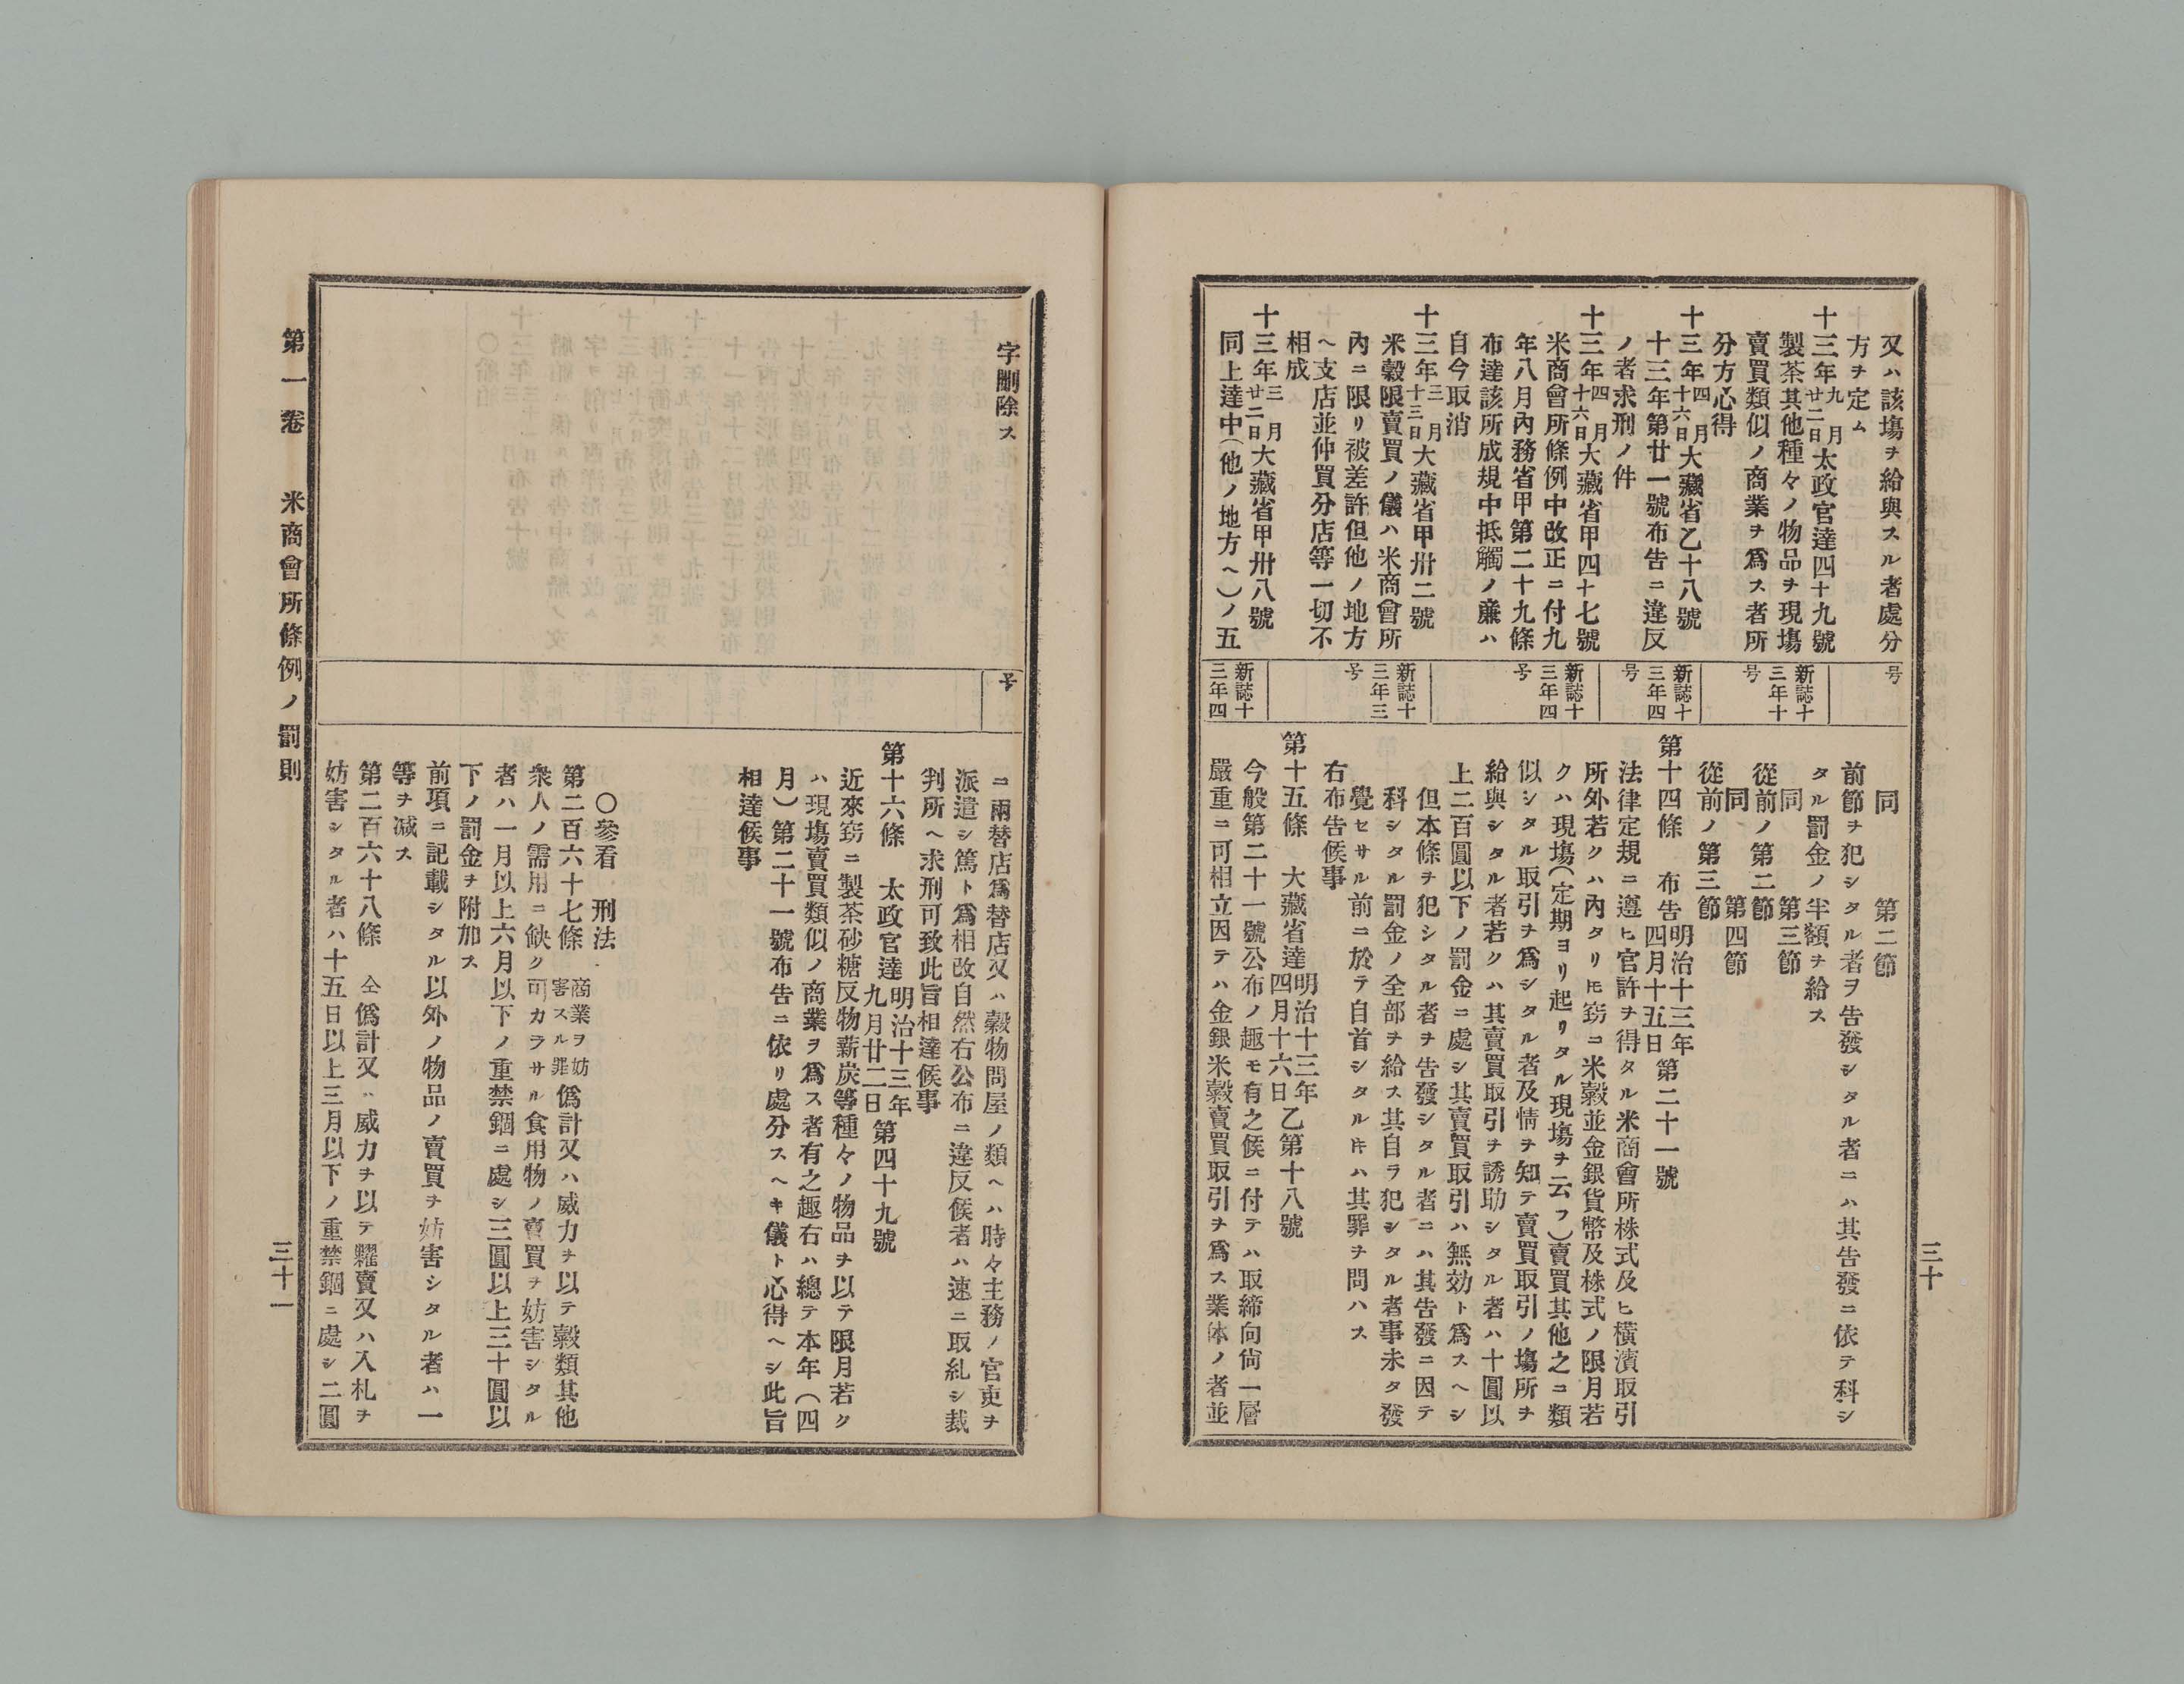 又ハ該塲ヲ給與スル者處分
方ヲ定ム
十三年九月廿二日太政官達四十九號
製茶其他種々ノ物品ヲ現塲
賣買類似ノ商業ヲ爲ス者所
分方心得
十三年四月十六日大藏省乙十八號
十三年第廿一號布告ニ違反
ノ者求刑ノ件
十三年四月十六日大藏省甲四十七號
米商會所條例中改正ニ付九
年八月內務省甲第二十九條
布達該所成規中抵觸ノ廉ハ
自今取消
十三年三月十三日大藏省甲卅二號
米穀限賣買ノ儀ハ米商會所
內ニ限リ被差許但他ノ地方
ヘ支店並仲買分店等一切不
相成
十三年三月廿二日大藏省甲卅八號
同上達中(他ノ地方ヘ)ノ五
号
新誌十
三年十
号
新誌十
三年四
号
新誌十
三年四
号
新誌十
三年三
号
新誌十
三年四
同　第二節
前節ヲ犯シタル者ヲ告發シタル者ニハ其告發ニ依テ科シ
タル罰金ノ半額ヲ給ス
同　第三節
從前ノ第二節
同　第四節
從前ノ第三節
第十四條　布告明治十三年四月十五日第二十一號
法律定規ニ遵ヒ官許ヲ得タル米商會所株式及ヒ橫濱取引
所外若クハ內タリトモ窃ニ米穀並金銀貨幣及株式ノ限月若
クハ現塲(定期ヨリ起リタル現塲ヲ云フ)賣買其他之ニ類
似シタル取引ヲ爲シタル者及情ヲ知テ賣買取引ノ塲所ヲ
給與シタル者若クハ其賣買取引ヲ誘助シタル者ハ十圓以
上二百圓以下ノ罰金ニ處シ其賣買取引ハ無効ト爲スヘシ
但本條ヲ犯シタル者ヲ告發シタル者ニハ其告發ニ因テ
科シタル罰金ノ全部ヲ給ス其自ラ犯シタル者事未タ發
覺セサル前ニ於テ自首シタルトキハ其罪ヲ問ハス
右布告候事
第十五條　大藏省達明治十三年四月十六日乙第十八號
今般第二十一號公布ノ趣モ有之候ニ付テハ取締向尙一層
嚴重ニ可相立因テハ金銀米穀賣買取引ヲ爲ス業体ノ者並
三十
字刪除ス
号
ニ兩替店爲替店又ハ穀物問屋ノ類ヘハ時々主務ノ官吏ヲ
派遣シ篤ト爲相改自然右公布ニ違反候者ハ速ニ取糺シ裁
判所ヘ求刑可致此旨相達候事
第十六條　太政官達明治十三年九月廿二日第四十九號
近來窃ニ製茶砂糖反物薪炭等種々ノ物品ヲ以テ限月若ク
ハ現塲賣買類似ノ商業ヲ爲ス者有之趣右ハ總テ本年(四
月)第二十一號布告ニ依リ處分スヘキ儀ト心得ヘシ此旨
相達候事
〇參看　刑法
第二百六十七條　商業ヲ妨害スル罪　僞計又ハ威力ヲ以テ穀類其他
衆人ノ需用ニ缺ク可カラサル食用物ノ賣買ヲ妨害シタル
者ハ一月以上六月以下ノ重禁錮ニ處シ三圓以上三十圓以
下ノ罰金ヲ附加ス
前項ニ記載シタル以外ノ物品ノ賣買ヲ妨害シタル者ハ一
等ヲ減ス
第二百六十八條　仝　僞計又ハ威力ヲ以テ糶賣又ハ入札ヲ
妨害シタル者ハ十五日以上三月以下ノ重禁錮ニ處シ二圓
第一卷　米商會所條例ノ罰則
三十一